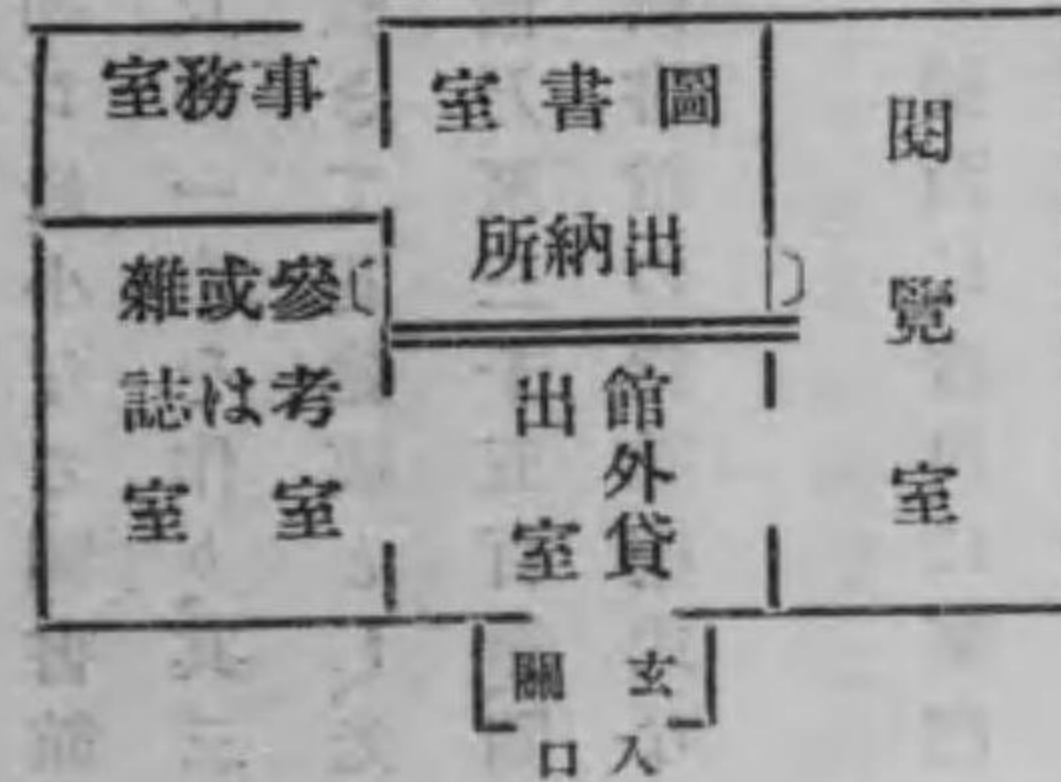 閲覽室
圖書室
出納所
事務室
參考室
或は
雜誌室
館外貸
出室
玄關
入口